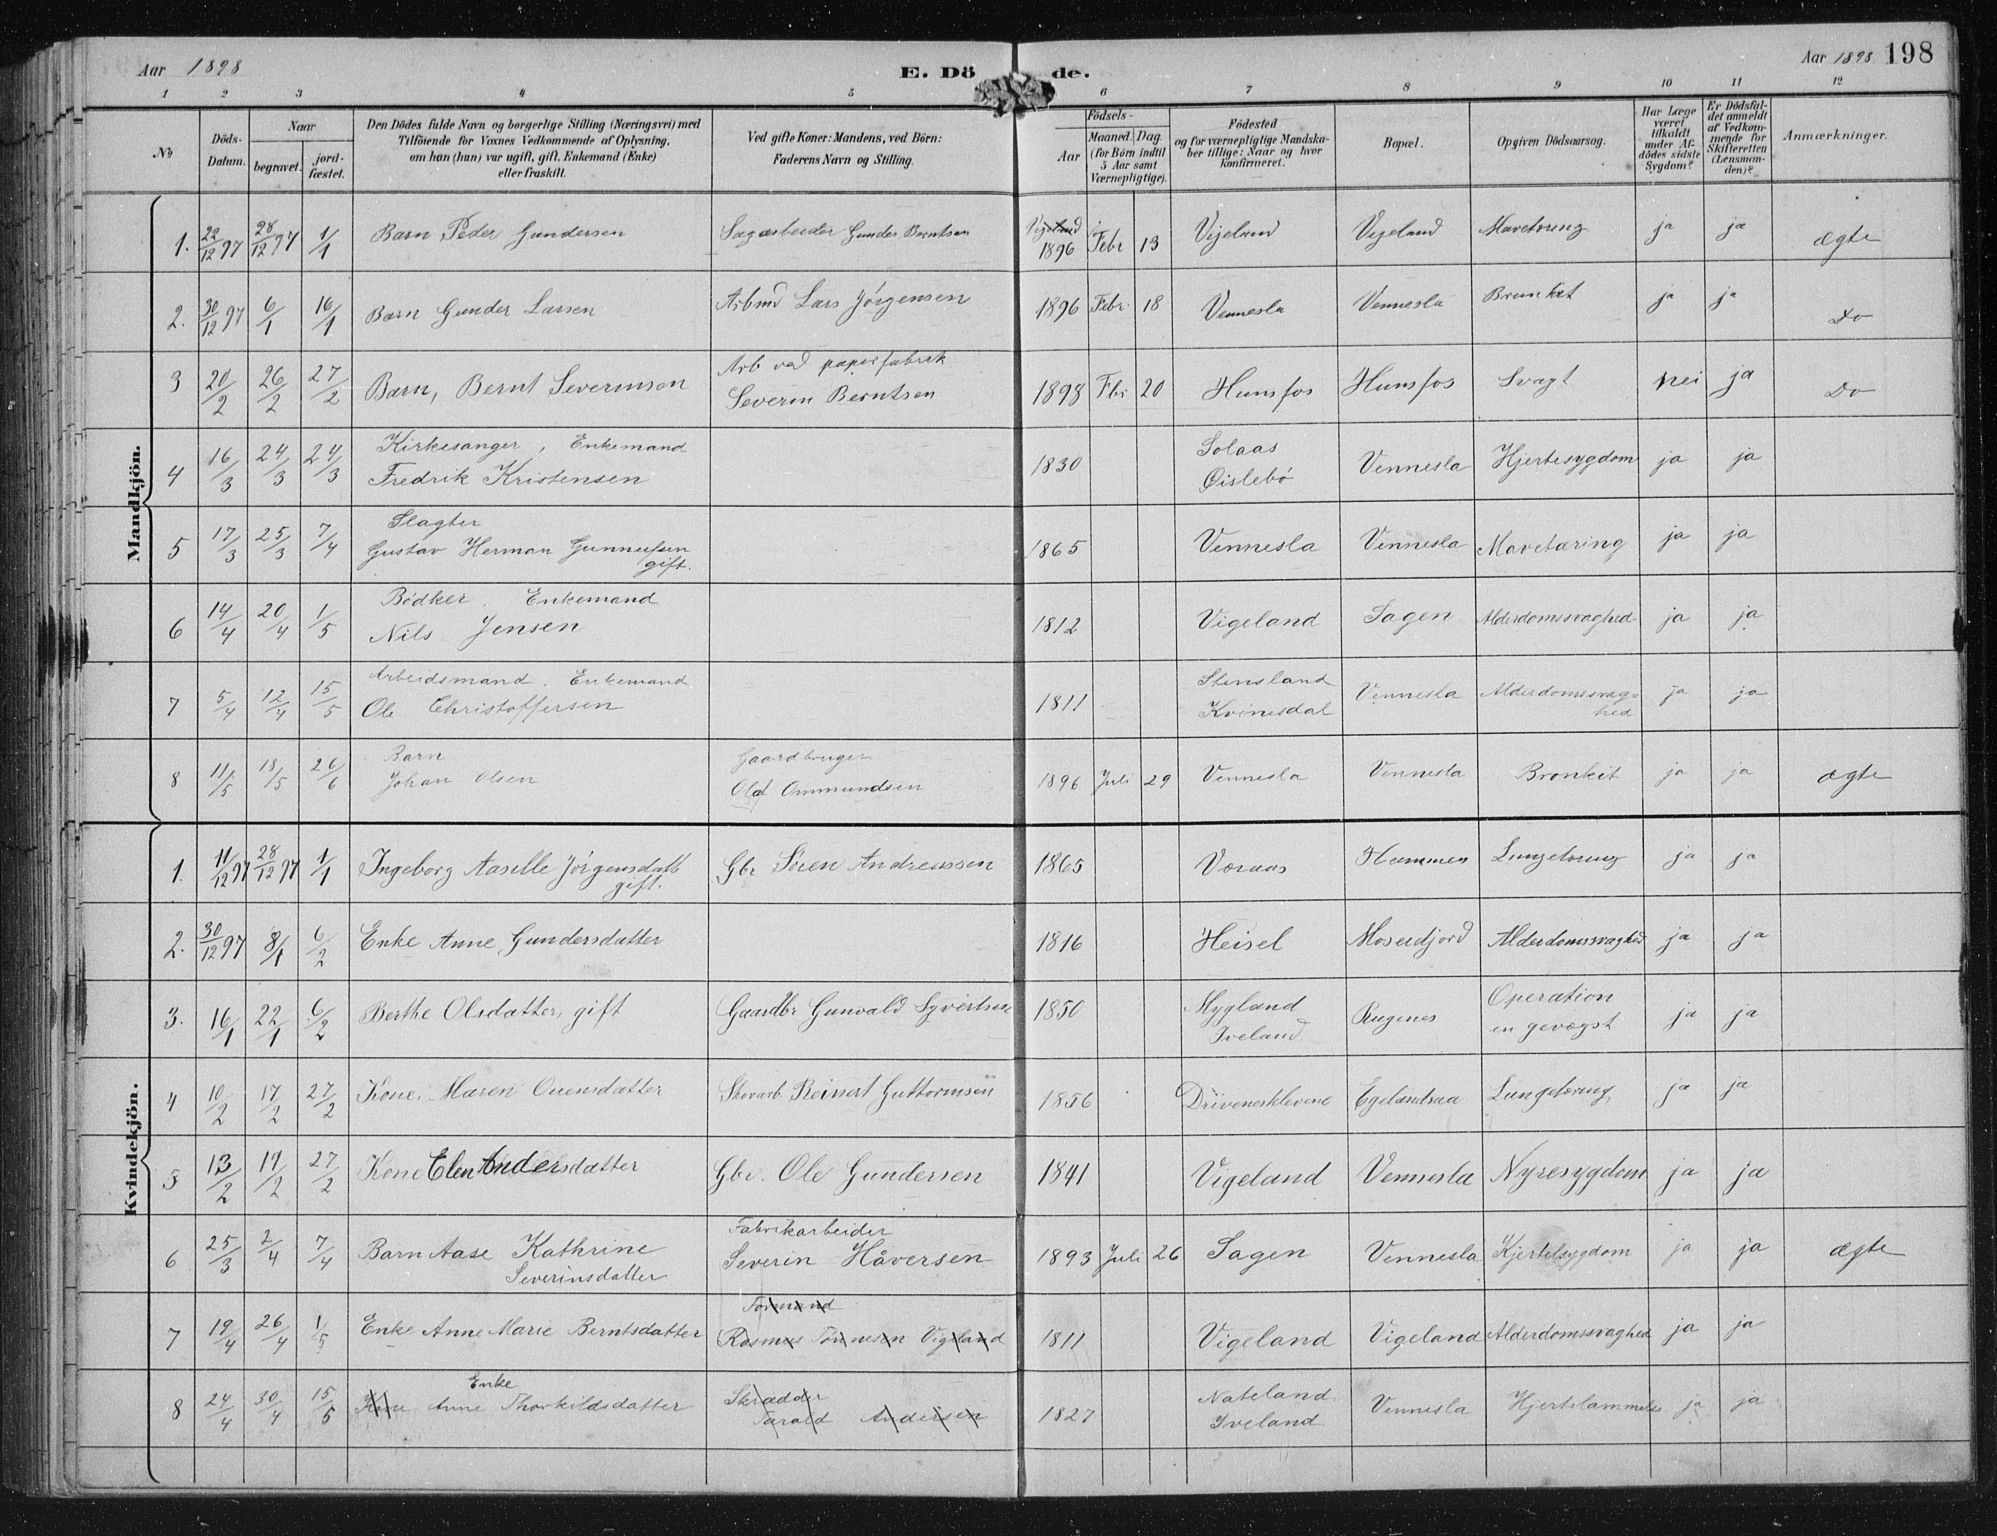 Aar 1898
E. Dö de.
Aar 1898 198
1 2 3 4 5 6 7 8 9 10 11 12
№
Döds-Datum.
Naar
begravet.
jord-fæstet.
Den Dödes fulde Navn og borgerlige Stilling (Næringsvei) med
Tilföiende for Voxnes Vedkommende af Oplysning,
om han (hun) var ugift, gift, Enkemand (Enke)
eller fraskilt.
Ved gifte Koner: Mandens, ved Börn:
Faderens Navn og Stilling.
Födsels-
Aar
Maaned. Dag.
(for Börn indtil
5 Aar samt
Værnepligtige).
Födested
og for værnepligtige Mandska-
ber tillige: Naar og hvor
konfirmeret.
Bopæl.
Opgiven Dödsaarsag.
Har Læge
været
tilkaldt
under Af-
dödes sidste
Sygdom?
Er Dödsfal-
det anmeldt
af Vedkom-
mende for
Skifteretten
(Lensman-
den)?
Anmærkninger.
Mandkjön.
1. 22/12 97 28/12 97 1/1 Barn Peder Gundersen Sagarbeider Gunder Berntsen Vigeland 1896 Febr 13 Vigeland Vigeland Mavetæring ja ja ægte
2. 30/12 97 6/1 16/1 Barn Gunder Larsen Arbmd Lars Jörgensen 1896 Febr. 18 Vennesla Vennesla Bronkit ja ja Do
3 20/2 26/2 27/2 Barn, Bernt Severinsen Arb ved papirfabrik
Severin Berntsen 1898 Fbr 20 Hunsfos Hunsfos Svagt nei ja Do
4 16/3 24/3 24/3 Kirkesanger, Enkemand
Fredrik Kristensen 1830 Solaas
Øislebö Vennesla Hjertesygdom ja ja
5 17/3 25/3 7/4 Slagter
Gustav Herman Gunneufsen
gift. 1865 Vennesla Vennesla Mavetæring ja ja
6 14/4 20/4 1/5 Bödker. Enkemand
Nils Jensen 1812 Vigeland Sagen Alderdomssvaghed ja ja
7 5/4 12/4 15/5 Arbeidsmand. Enkemand
Ole Christoffersen 1811 Stensland
Kvinesdal Vennesla Alderdomssvag-
hed ja ja
8 11/5 18/5 26/6 Barn
Johan Olsen Gaardbruger
Olaf Ommundsen 1896 Juli 29 Vennesla Vennesla Bronkit ja ja ægte
Kvindekjön.
1. 11/12 97 28/12 97 1/1 Ingeborg Aaselle Jörgensdatt
gift. Gbr Sören Andreassen 1865 Voraas Hammen Lungetæring ja ja
2. 30/12 97 8/1 6/2 Enke Anne Gundersdatter 1816 Heisel Moseidjord Alderdomssvaghed ja ja
3. 16/1 22/1 6/2 Berthe Olsdatter, gift Gaardbr Gunvald Syvertsen 1850 Mygland
Iveland Rugenes Operation
en gevægst ja ja
4 10/2 17/2 27/2 Kone. Maren Ouensdatter Skovarb. Reinert Guttormsen 1856 Drivenesklevene Egelandsaa Lungetæring ja ja
5 13/2 19/2 27/2 Kone Elen Andersdatter Gbr. Ole Gundersen 1841 Vigeland Vennesla Nyresygdom ja ja
6 25/3 2/4 7/4 Barn Aase Kathrine
Severinsdatter Fabrikarbeider
Severin Håversen 1893 Juli 26 Sagen Vennesla Kjertelsygdom ja ja ægte
7 19/4 26/4 1/5 Enke Anne Marie Berntsdatter Formand
Rasmus Tönnesen Vigeland 1811 Vigeland Vigeland Alderdomssvaghed ja ja
8 24/4 30/4 15/5 Kone Enke Anne Thorkildsdatter Skrædder
Tarald Andersen 1827 Nateland
Iveland Vennesla Hjertelammelse ja ja